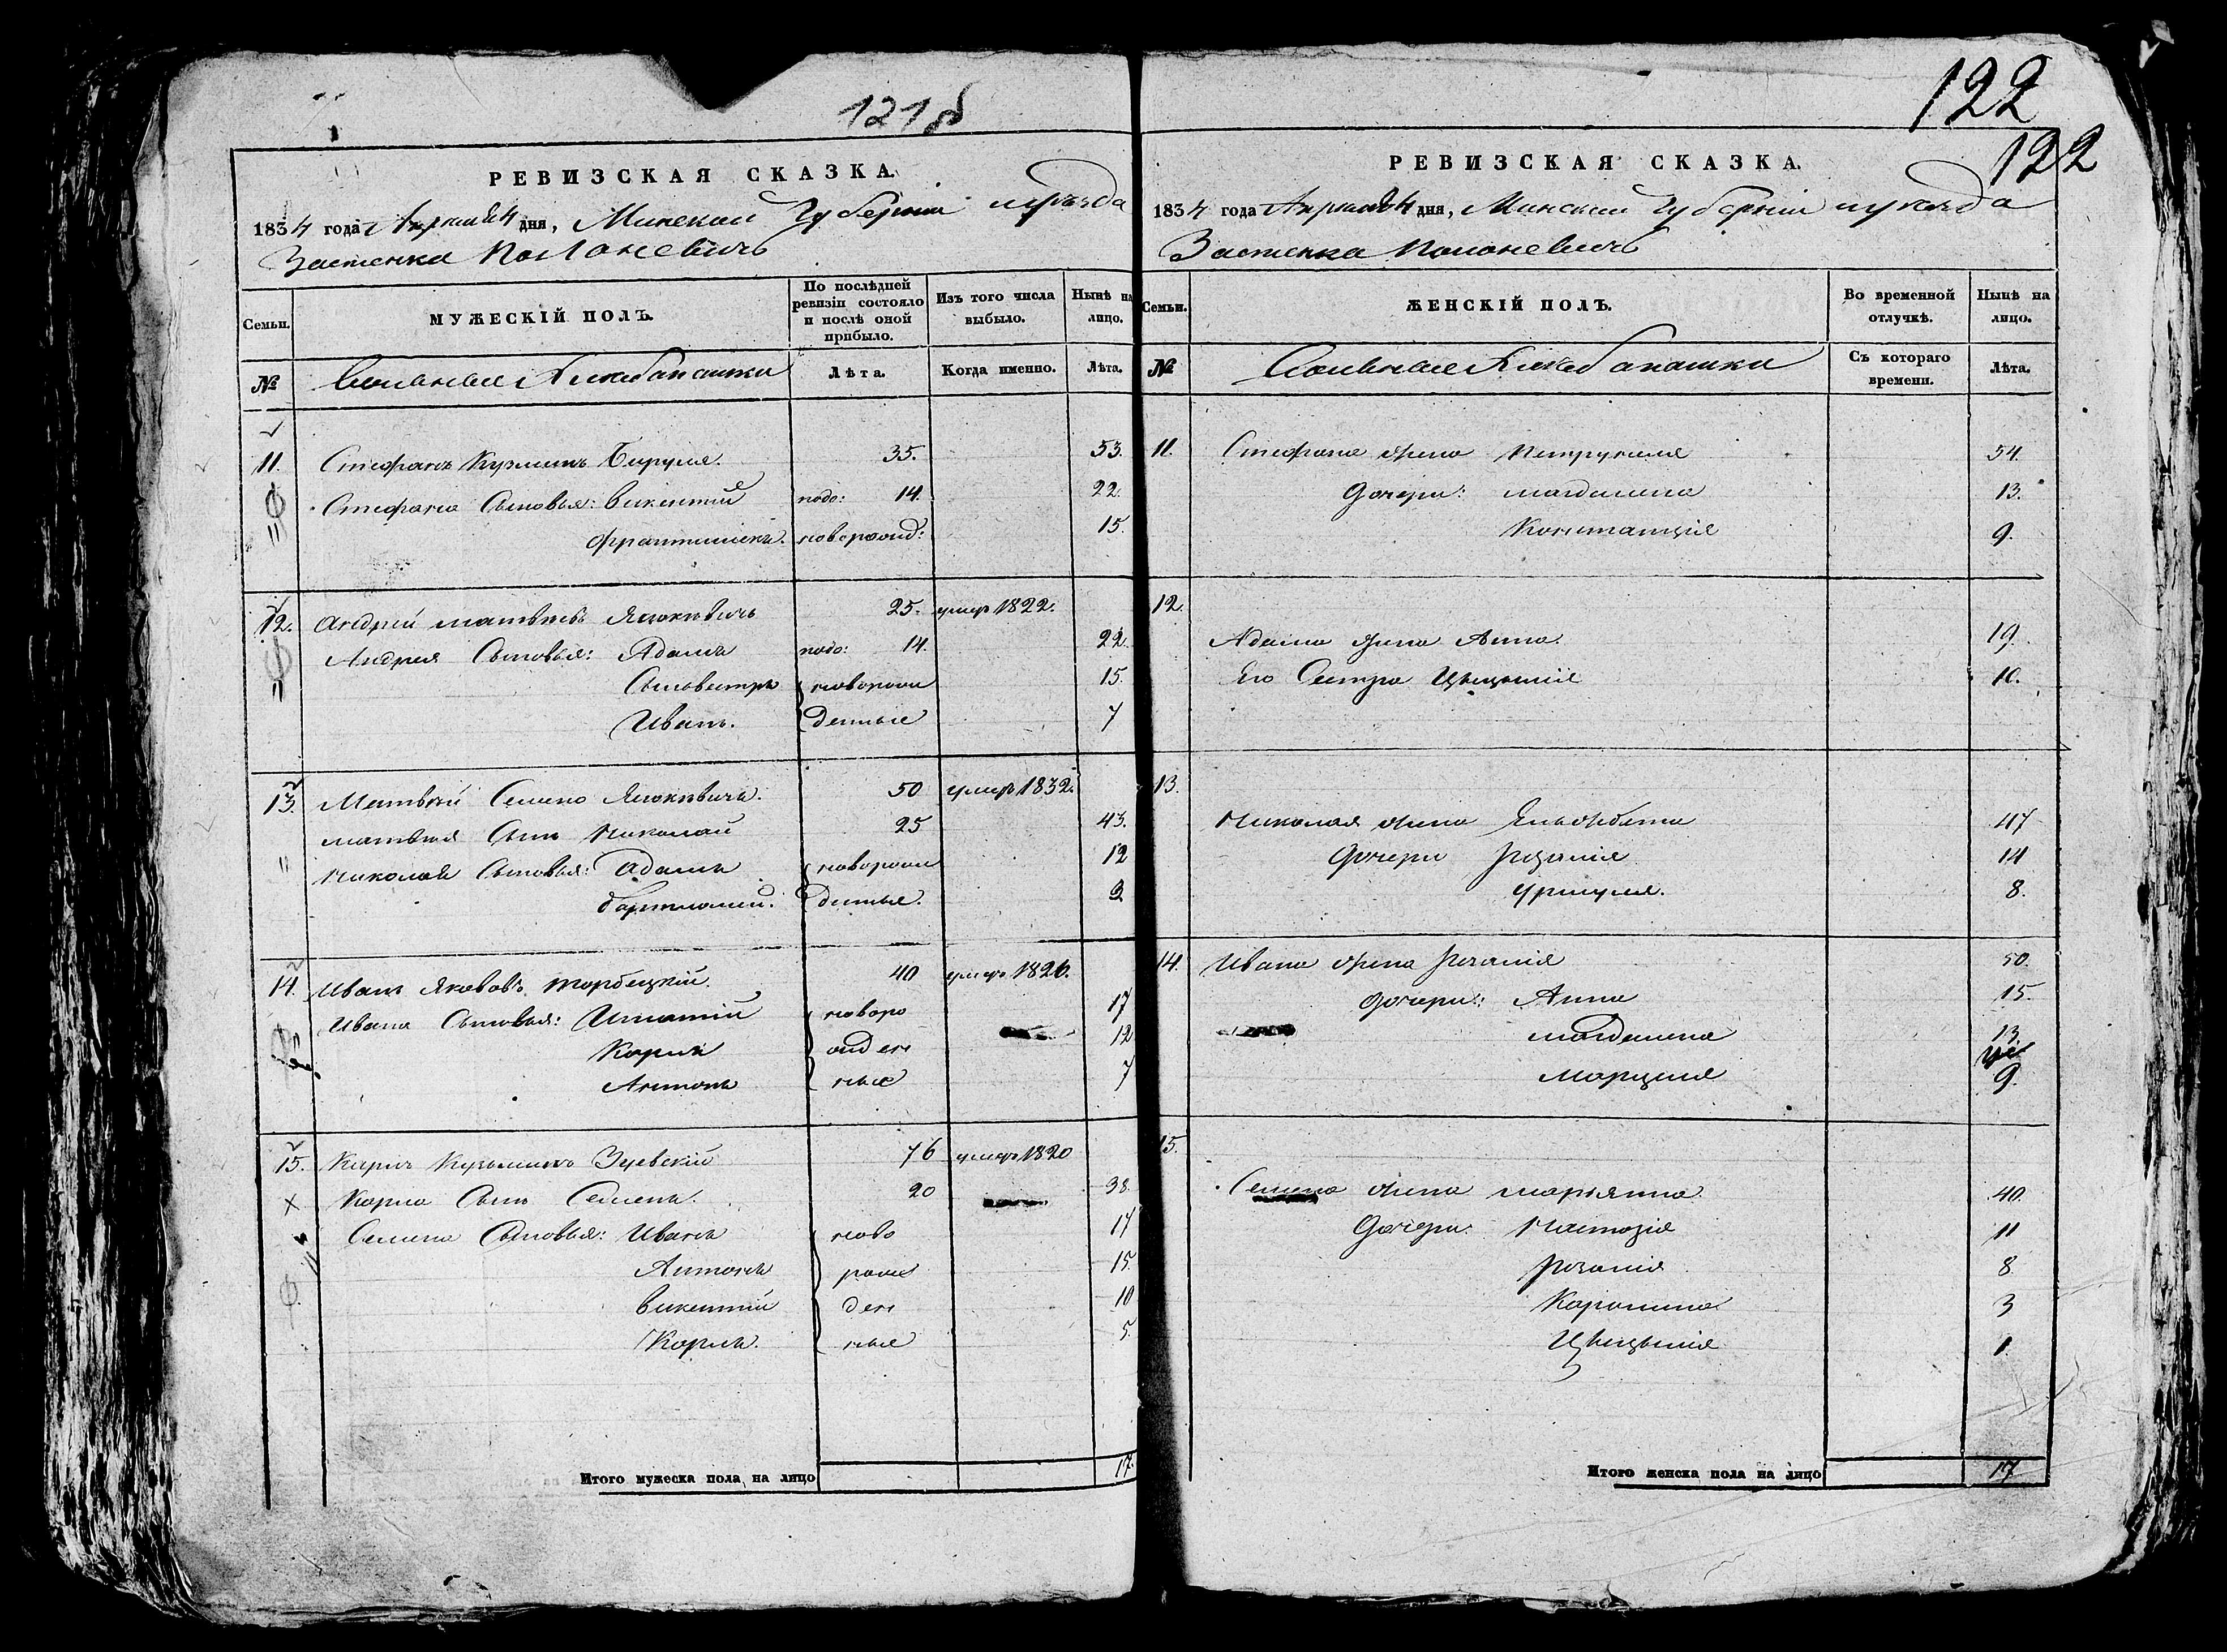 121 б
РЕВИЗСКАЯ СКАЗКА.
1834 года Апреля 24 дня, Минской Губерніи и уѣзда
Застенка Полоневичъ
Семьи.
МУЖЕСКІЙ ПОЛЪ.
По послѣдней ревизіи состояло и послѣ оной прибыло.
Изъ того числа выбыло.
Нынѣ на лицо.
№
Вольные Хлебопашцы
Лѣта.
Когда именно.
Лѣта.
11. Стефанъ Кузминъ Бируля. 35. 53.
Стефана Сыновья: Викентій подо: 14. 22.
Францишекъ. поворожд: 15.
12. Андрей Матвѣевъ Янкевичъ 25. умер 1822.
Андрея Сыновья: Адамъ подо: 14. 22.
Сильвестръ новорож 15.
Иванъ. денные 7
13. Матвѣй Семено Янкевичъ. 50 умеръ 1832.
Матвѣя Сынъ Николай 25 43.
Николая Сыновья: Адамъ новорож 12
Бартломей. денные. 3
14. Иванъ Якововъ Торбецкій. 40 умеръ 1826.
Ивана Сыновья: Игнатій новоро 17
Карлъ жден 12
Антонъ ные 7
15. Карлъ Кузьминъ Зуевскій 76 умеръ 1820
Карла Сынъ Семенъ. 20 38.
Семена Сыновья: Иванъ ново 17
Антонъ рож 15
Викентій ден 10
Карлъ. ные 5.
Итого мужеска пола на лицо 17.
122
122
РЕВИЗСКАЯ СКАЗКА.
1834 года Апреля 24 дня, Минской Губерніи и уѣзда
Застенка Полоневичъ
Семьи.
ЖЕНСКІЙ ПОЛЪ.
Во временной отлучкѣ.
Нынѣ на лицо.
№
Вольные Хлебопашцы
Съ котораго времени.
Лѣта.
11. Стефана жена Петрунеля 54.
Дочери: Магдалена 13.
Констанція 9.
12.
Адама жена Анна. 19.
Его Сестра Цецылія 10.
13.
Николая жена Эльжбета 47
Дочери Розалія 14
Уршуля. 8.
14. Ивана жена Розалія 50.
Дочери: Анна 15.
Магдалена 13
Марцеля 9.
15.
Семена жена Марьянна 40.
Дочери: Настазія 11
Розалія 8
Каролина 3
Цецылія 1.
Итого женска пола на лицо 17